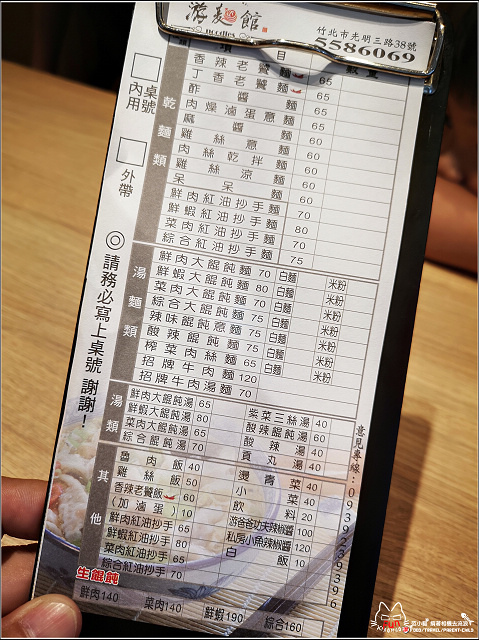 游麵館
noodles
竹北市光明三路38號
5586069
項目 數量
內用 桌號
外帶
◎請務必寫上桌號 謝謝！
乾麵類
香辣老饕麵 65
丁香老饕麵 65
酢醬麵 60
肉燥滷蛋意麵 65
麻醬麵 60
雞絲意麵 60
肉絲乾拌麵 60
雞絲涼麵 60
呆呆麵 60
鮮肉紅油抄手麵 70
鮮蝦紅油抄手麵 80
菜肉紅油抄手麵 70
綜合紅油抄手麵 75
湯麵類
鮮肉大餛飩麵 70 白麵 米粉
鮮蝦大餛飩麵 80 白麵 米粉
菜肉大餛飩麵 70 白麵 米粉
綜合大餛飩麵 75 白麵 米粉
辣味餛飩意麵 75 白麵 米粉
酸辣餛飩麵 75 白麵 米粉
榨菜肉絲麵 65
招牌牛肉麵 120
招牌牛肉湯麵 70
湯類
鮮肉大餛飩湯 65 紫菜三絲湯 40
鮮蝦大餛飩湯 80 酸辣餛飩湯 60
菜肉大餛飩湯 65 酸辣湯 40
綜合餛飩湯 70 貢丸湯 40
其他
魯肉飯 40 燙青菜 40
雞絲飯 50 小菜
香辣老饕飯 60 飲料 20
(加滷蛋) 10 游爸爸功夫辣椒醬 100
鮮肉紅油抄手 65 私房小魚辣椒醬 120
鮮蝦紅油抄手 80 白飯 10
菜肉紅油抄手 65
綜合紅油抄手 70
生餛飩
鮮肉140 菜肉140 鮮蝦190 綜合160
意見專線：0939239396